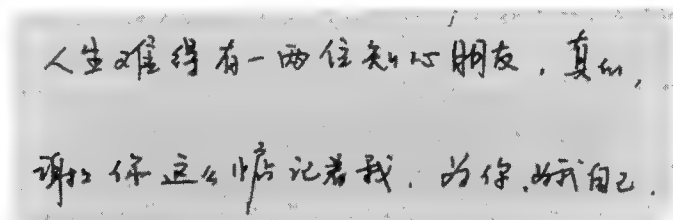 人生难得有一两位知心朋友，真的，
谢谢你这么惦记着我，为你，为我自己.